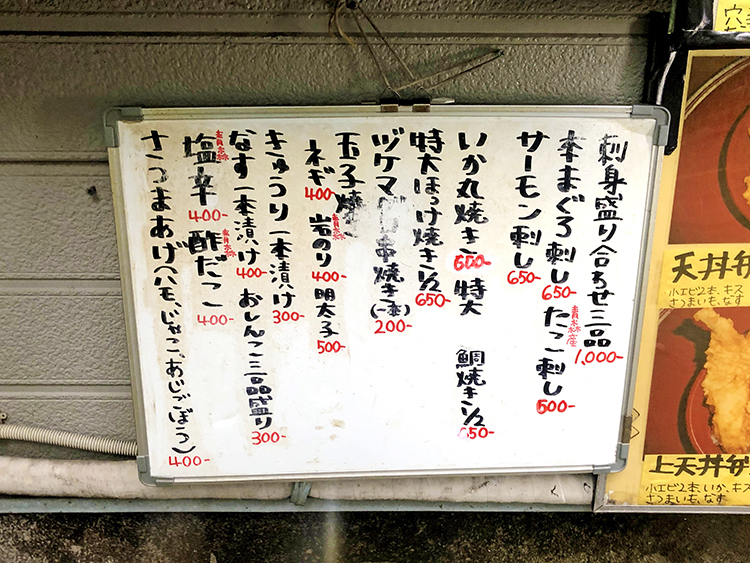 刺身盛り合わせ三品 1,000-
本まぐろ刺し 650- 青森産 たこ刺し 500-
サーモン刺し 650-
いか丸焼き 600- 特大 鯛焼き1/2 650-
特大ほっけ焼き1/2 650-
ヅケマグロ串焼き(一本) 200-
玉子焼
ネギ 400- 青森 岩のり 400- 明太子 500-
きゅうり一本漬け 300-
なす一本漬け 400- おしんこ三品盛り 300-
青森 塩辛 400- 青森 酢だこ 400-
さつまあげ(ハモ、じゃこ、あじごぼう) 400-
天丼
小エビ2本、キス
さつまいも、なす
上天丼
小エビ2本、いか、キス
さつまいも、なす